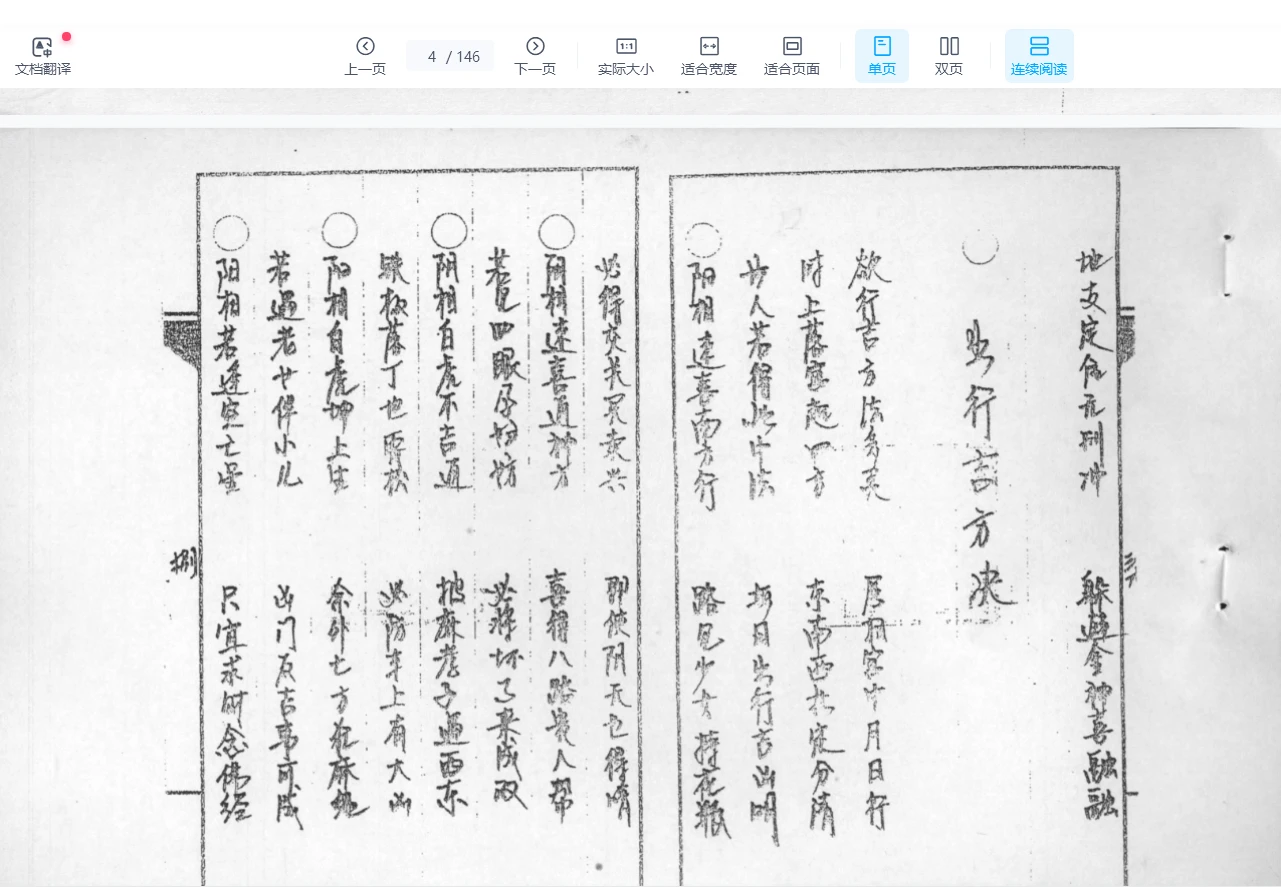 文档翻译
上一页
4 / 146
下一页
实际大小
适合宽度
适合页面
单页
双页
连续阅读
地支定 无刑冲 躲避金神喜融融
出行吉方决
欲行吉方法多灵 月日行
时上落宫起四方 东南西北定分清
人若得此中法 日出行吉凶明
阳相逢喜南方行 路见少女持花
必得 即使阴天也得晴
阴相逢喜通神方 喜得八路贵人帮
若见四眼孕妇妨 必将坏了来成双
阴相白虎不吉通 披麻孝子遇西东
落丁也 松 必防车上有大凶
阳相白虎坤上生 余外七方 麻绳
若遇老女伴小儿 凶门反吉事可成
阳相若逢空亡星 只宜求财念佛经
捌